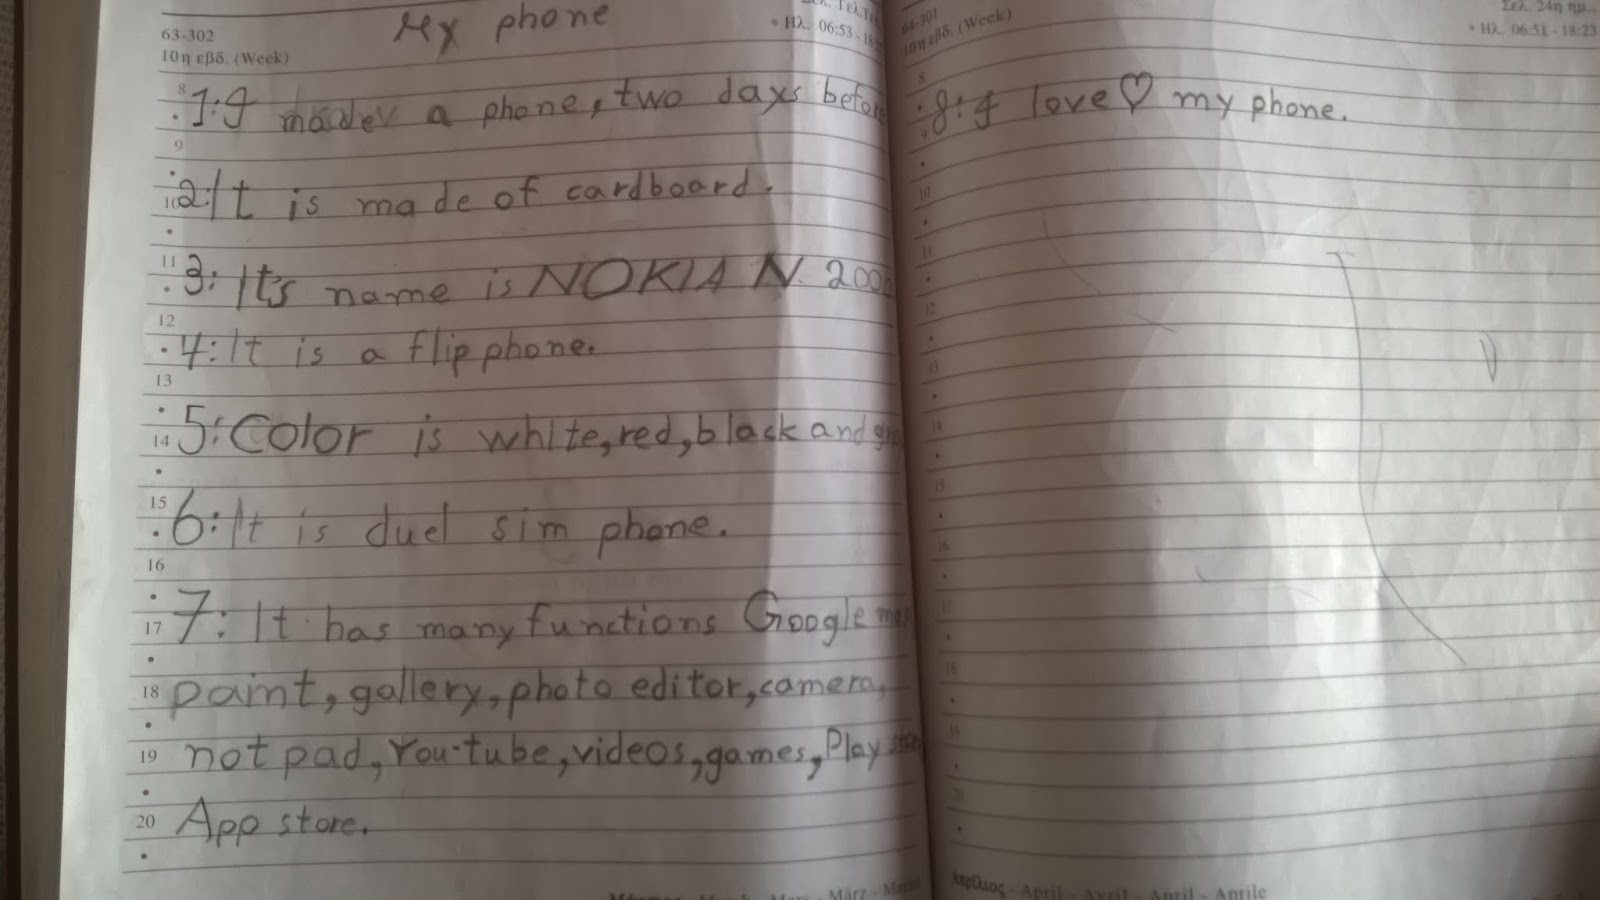 My phone
63-302
10η εβδ. (Week)
Ηλ. 06:53 - 18:
8
1: I made a phone, two days before
9
10
2: It is made of cardboard.
11
3: It's name is NOKIA N. 200
12
4: It is a flip phone.
13
14
5: Color is white, red, black and
15
6: It is duel sim phone.
16
17
7: It has many functions Google
18
paint, gallery, photo editor, camera,
19
not pad, You-tube, videos, games, Play
20
App store.
März
64-301
10η εβδ. (Week)
Σελ. 24η ημ.
Ηλ. 06:51 - 18:23
8
8: I love ♡ my phone.
9
10
11
12
13
14
15
16
17
18
19
20
Απρίλιος - April - Avril - April - Aprile